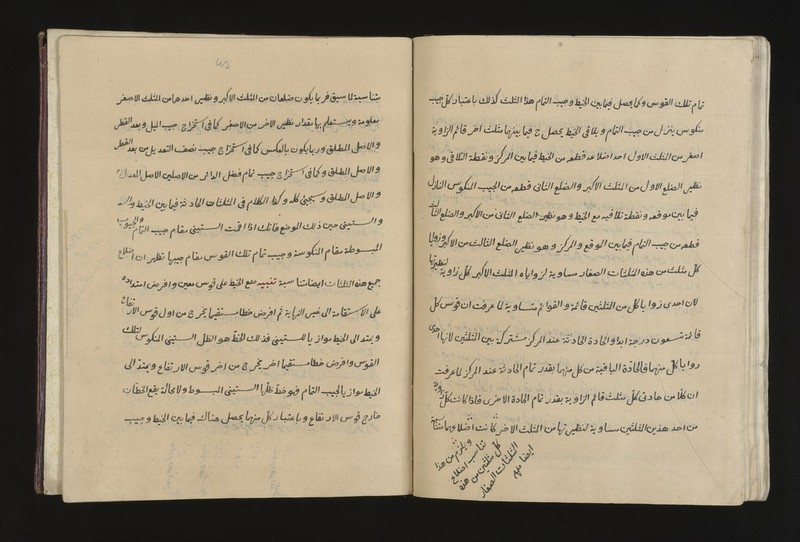 تمام تلك القوس وكما يحصل فيما بين الخيط وجيب التمام هذا المثلث كذلك باعتبار كل جيب
منكوس ينزل من جيب التمام ويلاقي الخيط يحصل ح فيما بينهما مثلث اخر قائم الزاوية
اصغر من المثلث الاول احد اضلاعه قطعة من الخيط فيما بين المركز ونقطة التلاقي وهو
نظير الضلع الاول من المثلث الاكبر والضلع الثاني قطعة من الجيب المنكوس النازل
فيما بين موقعه ونقطة تلاقيه مع الخيط وهو نظير الضلع الثاني من الاكبر والضلع الثالث
قطعة من جيب التمام فيما بين الموقع والمركز وهو نظير الضلع الثالث من الاكبر وزوايا
كل مثلث من هذه المثلثات الصغار مساوية لزوايا المثلث الاكبر كل زاوية لنظيرتها
لان احدى زوايا كل من المثلثين قائمة والقوائم متساوية لما عرفت ان قوس كل
قائمة تسعون درجة ابدا والحادة الحادثة عند المركز مشتركة بين المثلثين لانها احدى
زوايا كل منهما فالحادة الباقية من كل منهما بقدر تمام الحادثة عند المركز لما عرفت
ان كلا من حادتي كل مثلث قائم الزاوية بقدر تمام الحادة الاخرى فاذا كانت كل زاوية
من احد هذين المثلثين مساوية لنظيرتها من المثلث الاخر كانت اضلاعهما متناسبة
ويلزم من هذا
تناسب اضلاع
كل مثلثين من هذه
المثلثات الصغار
ايضا منه
متناسبة لما سبق فربما يكون ضلعان من المثلث الاكبر ونظير احدهما من المثلث الاصغر
معلومة ويستعلم بها مقدار نظير الاخر من الاصغر كما في استخراج جيب الميل وبعد القطر
والاصل المطلق وربما يكون بالعكس كما في استخراج جيب نصف التعديل من بعد القطر
والاصل المطلق وكما في استخراج جيب تمام فضل الدائر من الاصلين الاصل المعدل
والاصل المطلق وسيجئ كله وكذا الكلام في المثلثات الحادثة فيما بين الخيط
والستيني حين ذلك الوضع فانك اذا اقمت الستيني مقام جيب التمام والجيوب
المبسوطة مقام المنكوسة وجيب تمام تلك القوس مقام جيبها نظير ان اضلاع
جميع هذه المثلثات ايضا متناسبة تنبيه ضع الخيط على قوس معين وافرض امتداده
على الاستقامة الى غير النهاية ثم افرض خطا مستقيما يخرج من اول قوس الارتفاع
ويمتد الى الخيط موازيا للستيني فذلك الخط هو الظل الستيني المنكوس لتلك
القوس وافرض خطا مستقيما اخر يخرج من اخر قوس الارتفاع ويمتد الى
الخيط موازيا لجيب التمام فهو خط ظلها الستيني المبسوط ولا محالة يقع الخطان
خارج قوس الارتفاع وباعتبار كل منهما يحصل هناك فيما بين الخيط وجيب